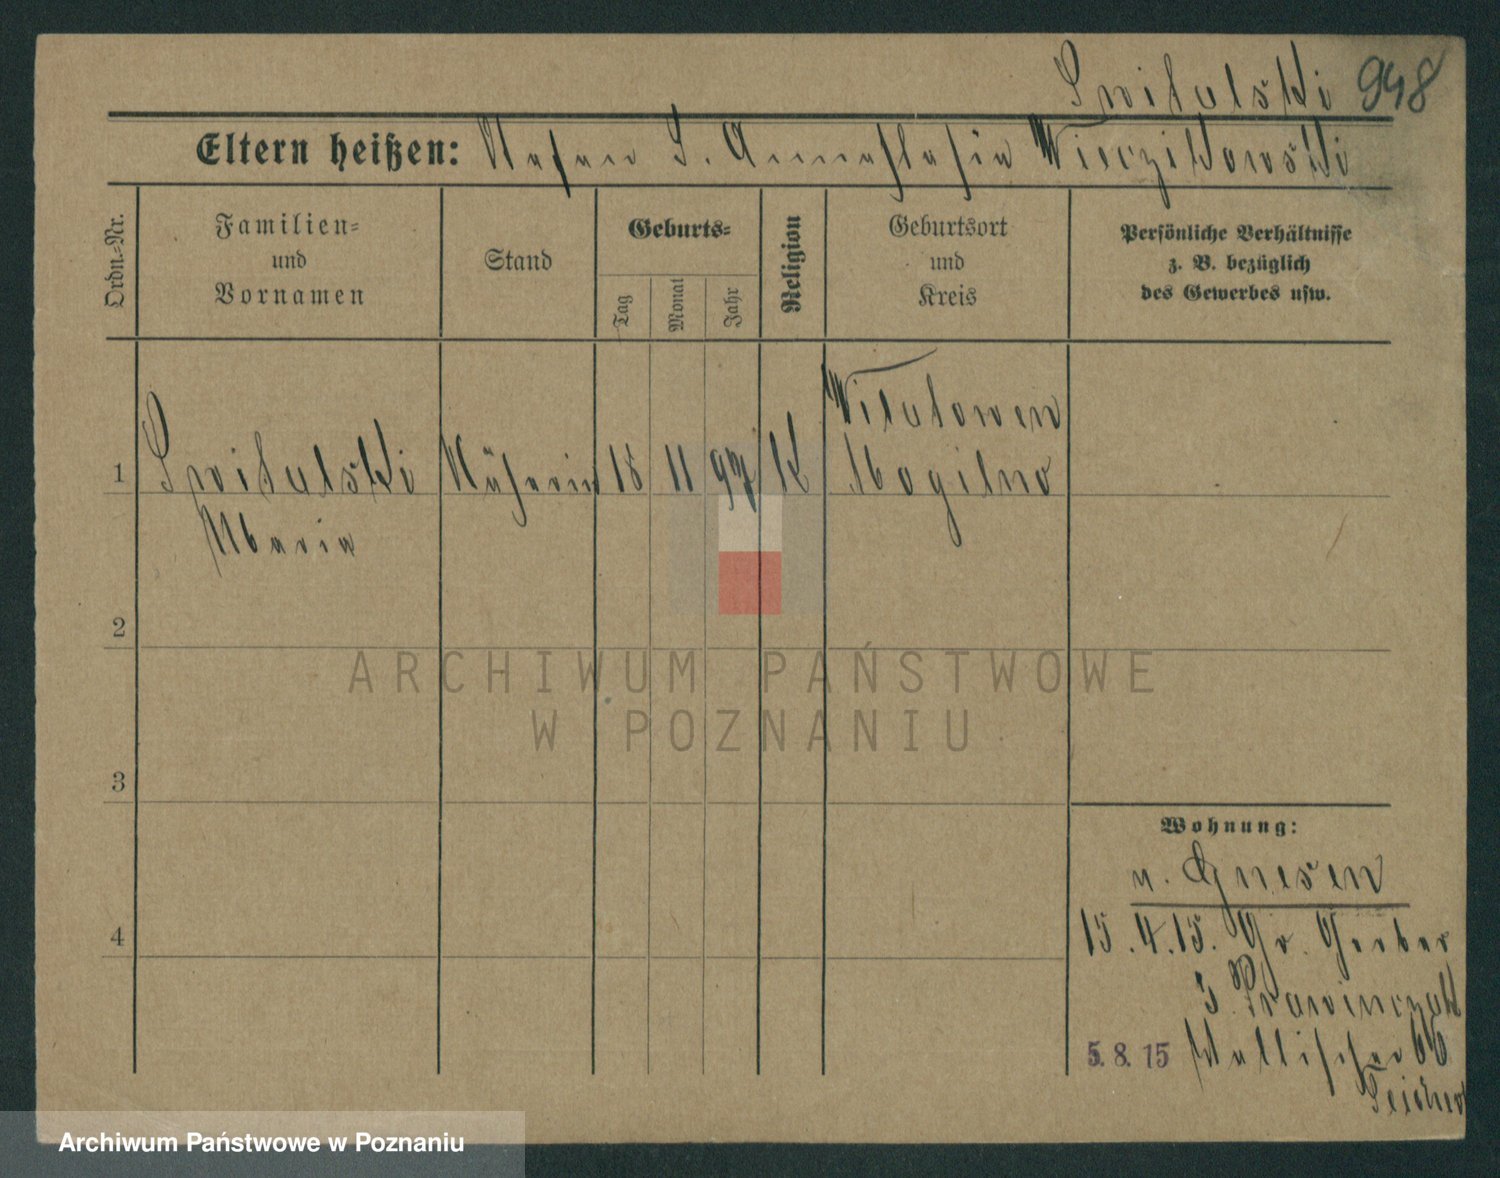 Switulski 948
Eltern heißen: Stefan S. Annastasia Wierzikowski
Ordn.-Nr.
Familien- und Vornamen
Stand
Geburts-
Tag
Monat
Jahr
Religion
Geburtsort und Kreis
Persönliche Verhältnisse
z. B. bezüglich
des Gewerbes usw.
Witutowen
1 Switulski Näherin 18 11 97 K Mogilno
Maria
2
3
4
Wohnung:
v. Gnesen
15.4.15. Gr. Gerber
5. Prawinczak
5. 8. 15 Wallischei
ARCHIWUM PAŃSTWOWE
W POZNANIU
Archiwum Państwowe w Poznaniu